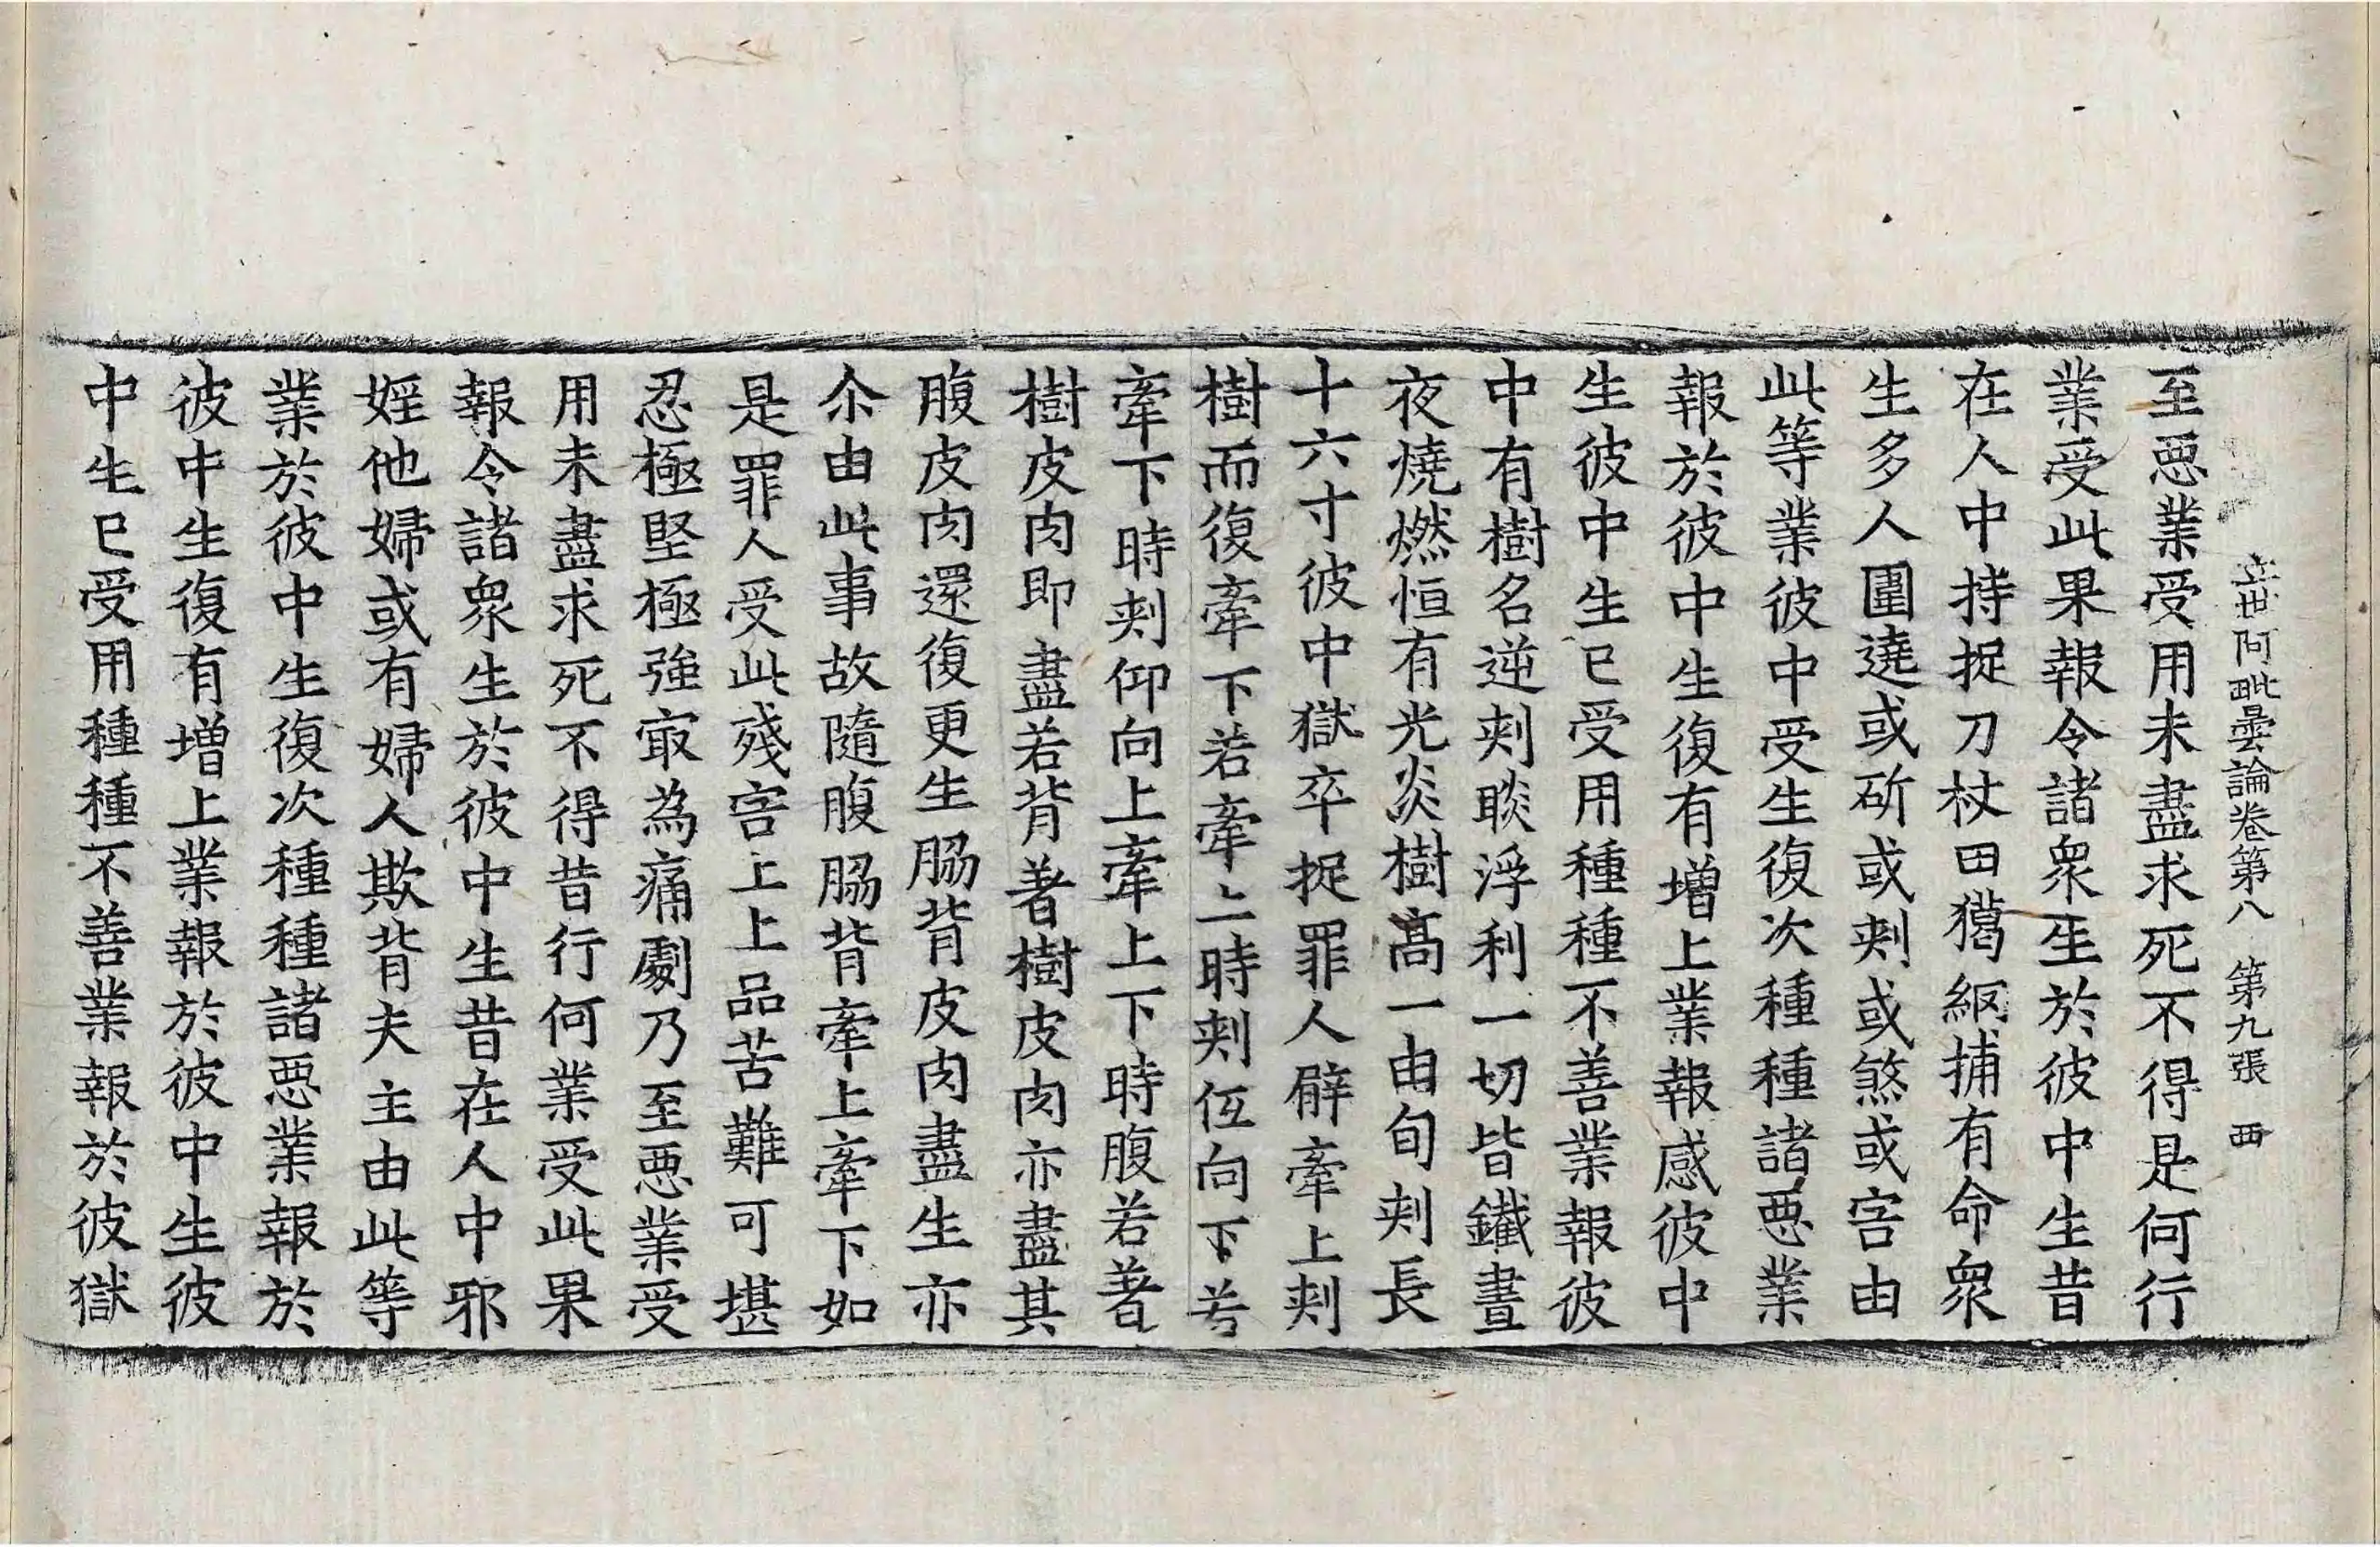 立世阿毗曇論卷第八 第九張 西
至惡業受用未盡求死不得是何行
業受此果報令諸衆生於彼中生昔
在人中持捉刀杖田獦𦊰捕有命衆
生多人圍遶或斫或刾或煞或害由
此等業彼中受生復次種種諸惡業
報於彼中生復有增上業報感彼中
生彼中生已受用種種不善業報彼
中有樹名逆刾睒浮利一切皆鐵晝
夜燒燃恒有光炎樹高一由旬刾長
十六寸彼中獄卒捉罪人臂牽上刾
樹而復牽下若牽上時刾伍向下若
牽下時刾仰向上牽上下時腹若著
樹皮肉即盡若背著樹皮肉亦盡其
腹皮肉還復更生脇背皮肉盡生亦
尒由此事故隨腹脇背牽上牽下如
是罪人受此殘害上上品苦難可堪
忍極堅極強冣為痛劇乃至惡業受
用未盡求死不得昔行何業受此果
報令諸衆生於彼中生昔在人中邪
婬他婦或有婦人欺背夫主由此等
業於彼中生復次種種諸惡業報於
彼中生復有增上業報於彼中生彼
中生已受用種種不善業報於彼獄